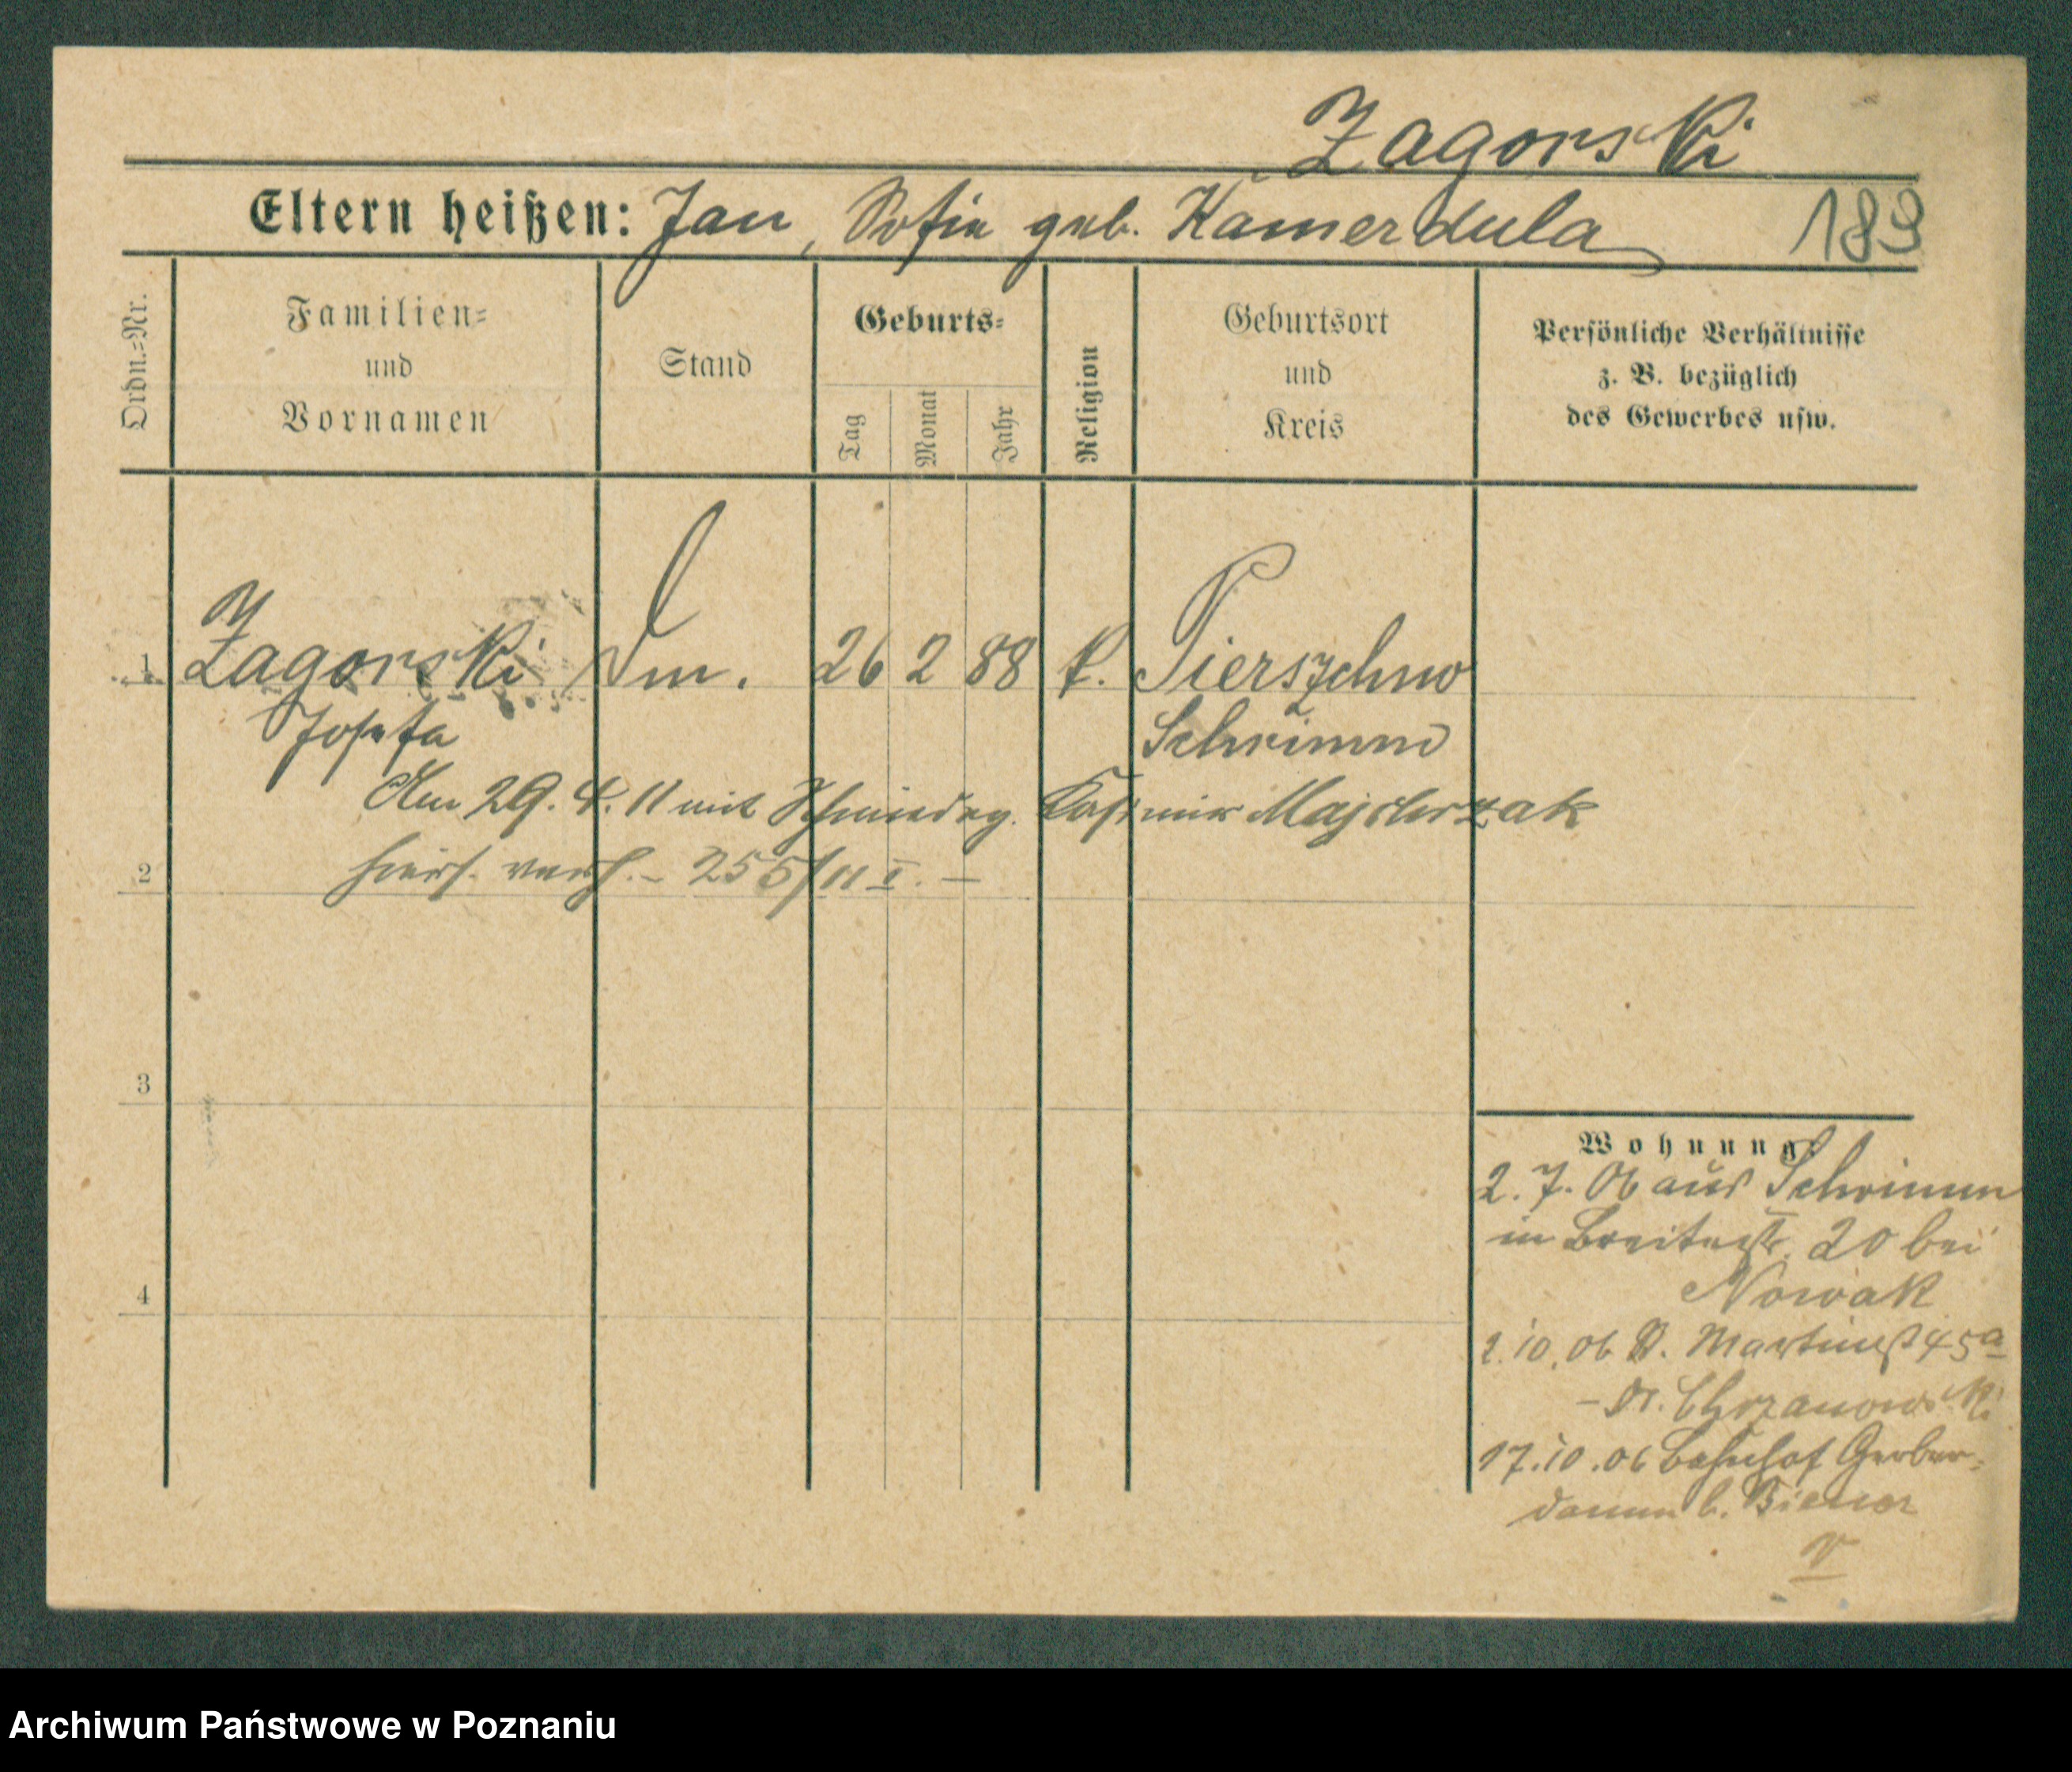 Zagorski
Eltern heißen: Jan, Sofie geb. Kamerdula
189
Ordn.=Nr.
Familien=
und
Vornamen
Stand
Geburts=
Tag
Monat
Jahr
Religion
Geburtsort
und
Kreis
Persönliche Verhältnisse
z. B. bezüglich
des Gewerbes usw.
1
Zagorski
26 2 88 k. Pierszchno
Josefa
Schrimm
Am 29. 4. 11 mit Schmiedeg. Kasimir Majchrzak
2
hiers. verh. - 255/11 I. -
3
4
Wohnung:
2. 7. 06 aus Schrimm
in Breitestr. 20 bei
Nowak
2. 10. 06 St. Martinstr 45a
- Dr. Chrzanowski
17. 10. 06 Bahnhof Gerber=
damm b. Biener
V
Archiwum Państwowe w Poznaniu